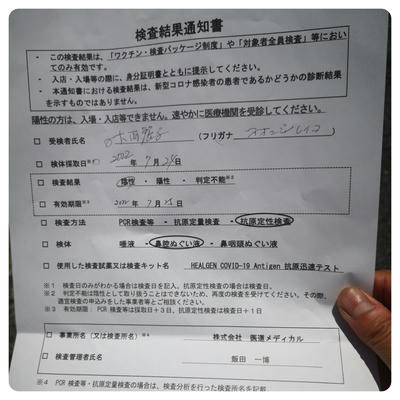 検査結果通知書
・ この検査結果は、「ワクチン・検査パッケージ制度」や「対象者全員検査」等において
のみ有効です。
・ 入店・入場等の際に、身分証明書とともに提示してください。
・ 本通知書における検査結果は、新型コロナ感染者の患者であるかどうかの診断結果
を示すものではありません。
陽性の方は、入場・入店等できません。速やかに医療機関を受診してください。
□ 受検者氏名 (フリガナ )
□ 検体採取日※1 2022 年 7 月 日
□ 検査結果 陰性 ・ 陽性 ・ 判定不能※2
□ 有効期限※3 年 7 月 日
□ 検査方法 PCR検査等 ・ 抗原定量検査 ・ 抗原定性検査
□ 検体 唾液 ・ 鼻腔ぬぐい液 ・ 鼻咽頭ぬぐい液
□ 使用した検査試薬又は検査キット名 HEALGEN COVID-19 Antigen 抗原迅速テスト
※1 検査日のみがわかる場合は検査日を記入。抗原定性検査の場合は検査日。
※2 判定不能は陰性として取り扱うことはできないため、再度の検査を受けてください。その際、
適宜検査の申込みをした事業者等とご相談ください。
※3 有効期限: PCR 検査等は採取日+3日、抗原定性検査は検査日+1日
□ 事業所名(又は検査所名)※4 株式会社 医道メディカル
□ 検査管理者氏名 飯田 一博
※4 PCR 検査等・抗原定量検査の場合は、検査分析を行った検査所名を記載